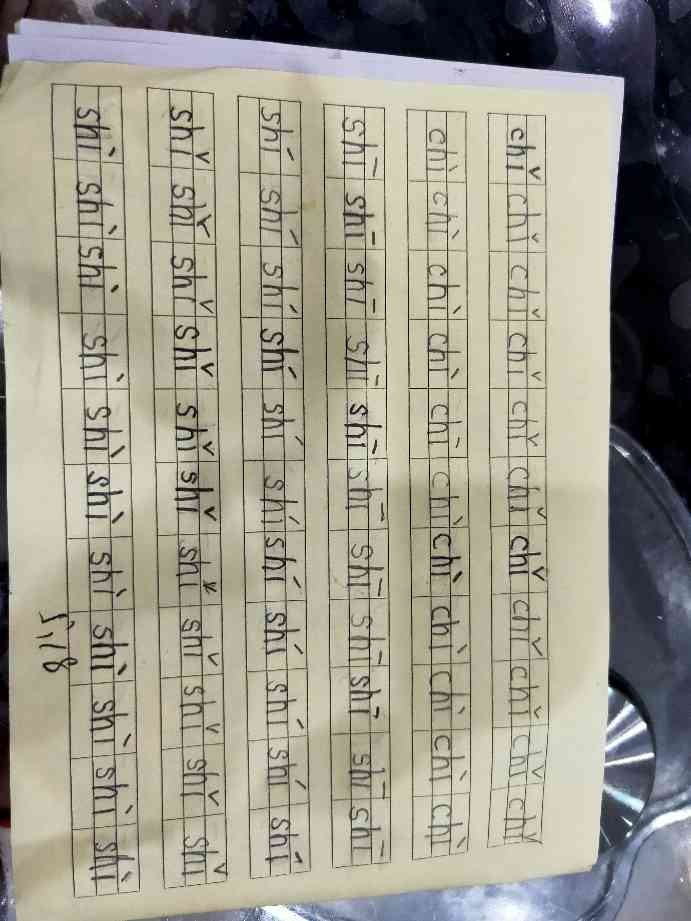 chǐ chǐ chǐ chǐ chǐ chǐ chǐ chǐ chǐ chǐ chǐ
chì chì chì chì chì chì chì chì chì chì chì
shī shī shī shī shī shī shī shī shī shī shī
shí shí shí shí shí shí shí shí shí shí shí
shǐ shǐ shǐ shǐ shǐ shǐ shǐ shǐ shǐ shǐ shǐ
shì shì shì shì shì shì shì shì shì shì shì
5,18